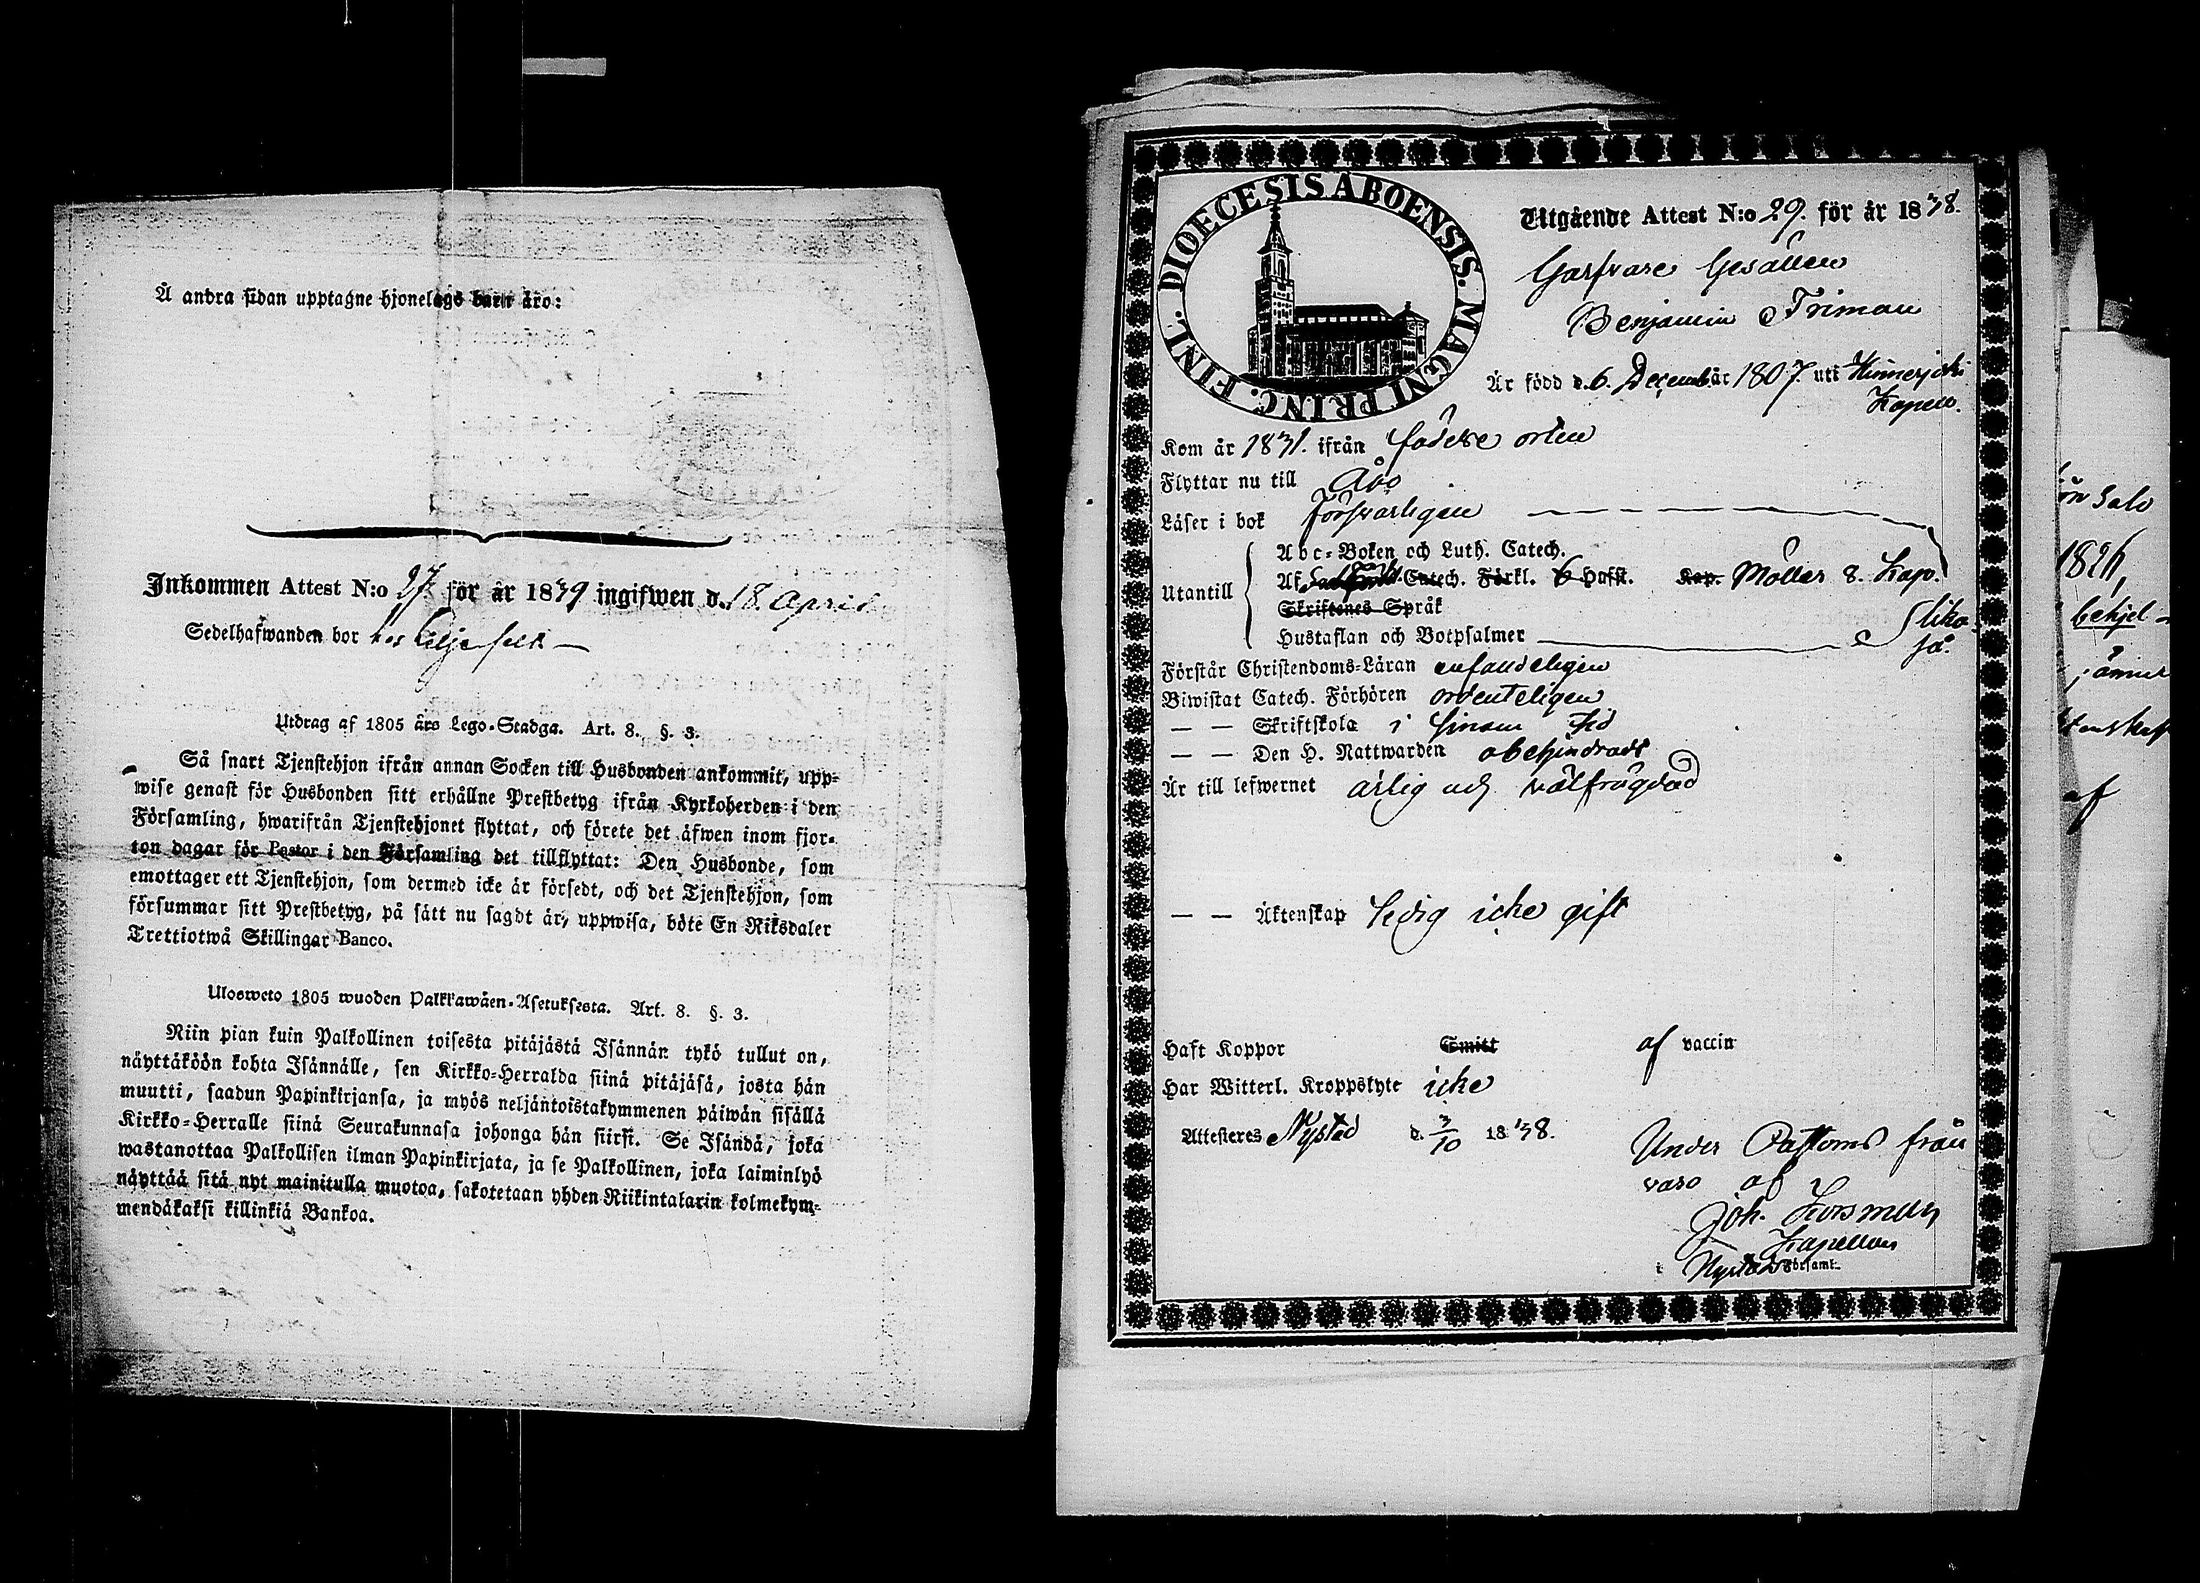 Å andra sidan upptagne hjonelags barn äro:
Inkommen Attest N:o 27. för år 1839 ingifwen d. 18. April
Sedelhafwanden bor hos Liljefelt
Utdrag af 1805 års Lego-Stadga. Art. 8. §. 3.
Så snart Tjenstehjon ifrån annan Socken till Husbonden ankommit, upp-
wise genast för Husbonden sitt erhållne Prestbetyg ifrån Kyrkoherden i den
Församling, hwarifrån Tjenstehjonet flyttat, och förete det äfwen inom fjor-
ton dagar för Pastor i den Församling det tillflyttat: Den Husbonde, som
emottager ett Tjenstehjon, som dermed icke är försedt, och det Tjenstehjon, som
försummar sitt Prestbetyg, på sätt nu sagdt är, uppwisa, böte En Riksdaler
Trettiotwå Skillingar Banco.
Ulosweto 1805 wuoden Palkkawäen-Asetuksesta. Art. 8. §. 3.
Niin pian kuin Palkollinen toisesta pitäjästä Isännän tykö tullut on,
näyttäköön kohta Isännälle, sen Kirkko-Herralda siinä pitäjäsä, josta hän
muutti, saadun Papinkirjansa, ja myös neljäntoistakymmenen päiwän sisällä
Kirkko-Herralle siinä Seurakunnasa johonga hän siirsi. Se Isändä, joka
wastanottaa Palkollisen ilman Papinkirjata, ja se Palkollinen, joka laiminlyö
näyttää sitä nyt mainitulla muotoa, sakotetaan yhden Riikintalarin kolmekym-
mendäkaksi killinkiä Bankoa.
DIOECESIS ABOENSIS. MAGNI PRINC. FINL.
Utgående Attest N:o 29. för år 1838.
Garfvare Gesällen
Benjamin Friman
Är född d. 6. December 1807. uti Hinnerjoki
Kapell.
Kom år 1831. ifrån födelse orten
Flyttar nu till Åbo
Läser i bok försvarligen
Abc-Boken och Luth. Catech.
Utantill Af Catech. Förkl. 6 Hufst. Kap. Möllers 8. Kap.
Skriftenes Språk
Hustaflan och Botpsalmer lika
så.
Förstår Christendoms-Läran enfaldeligen
Biwistat Catech. Förhören ordenteligen
— — Skriftskola i sinom tid
— — Den H. Nattwarden obehindradt
Är till lefwernet ärlig och välfrägdad
— — Äktenskap ledig icke gift
Haft Koppor Smitt af vaccin
Har Witterl. Kroppslyte icke
Attesteres Nystad d. 3/10 1838.
Under Pastoris från
varo af
Joh. Forsman
Kapellan
i Nystads Församl.
Salo
1826,
behjel-
af